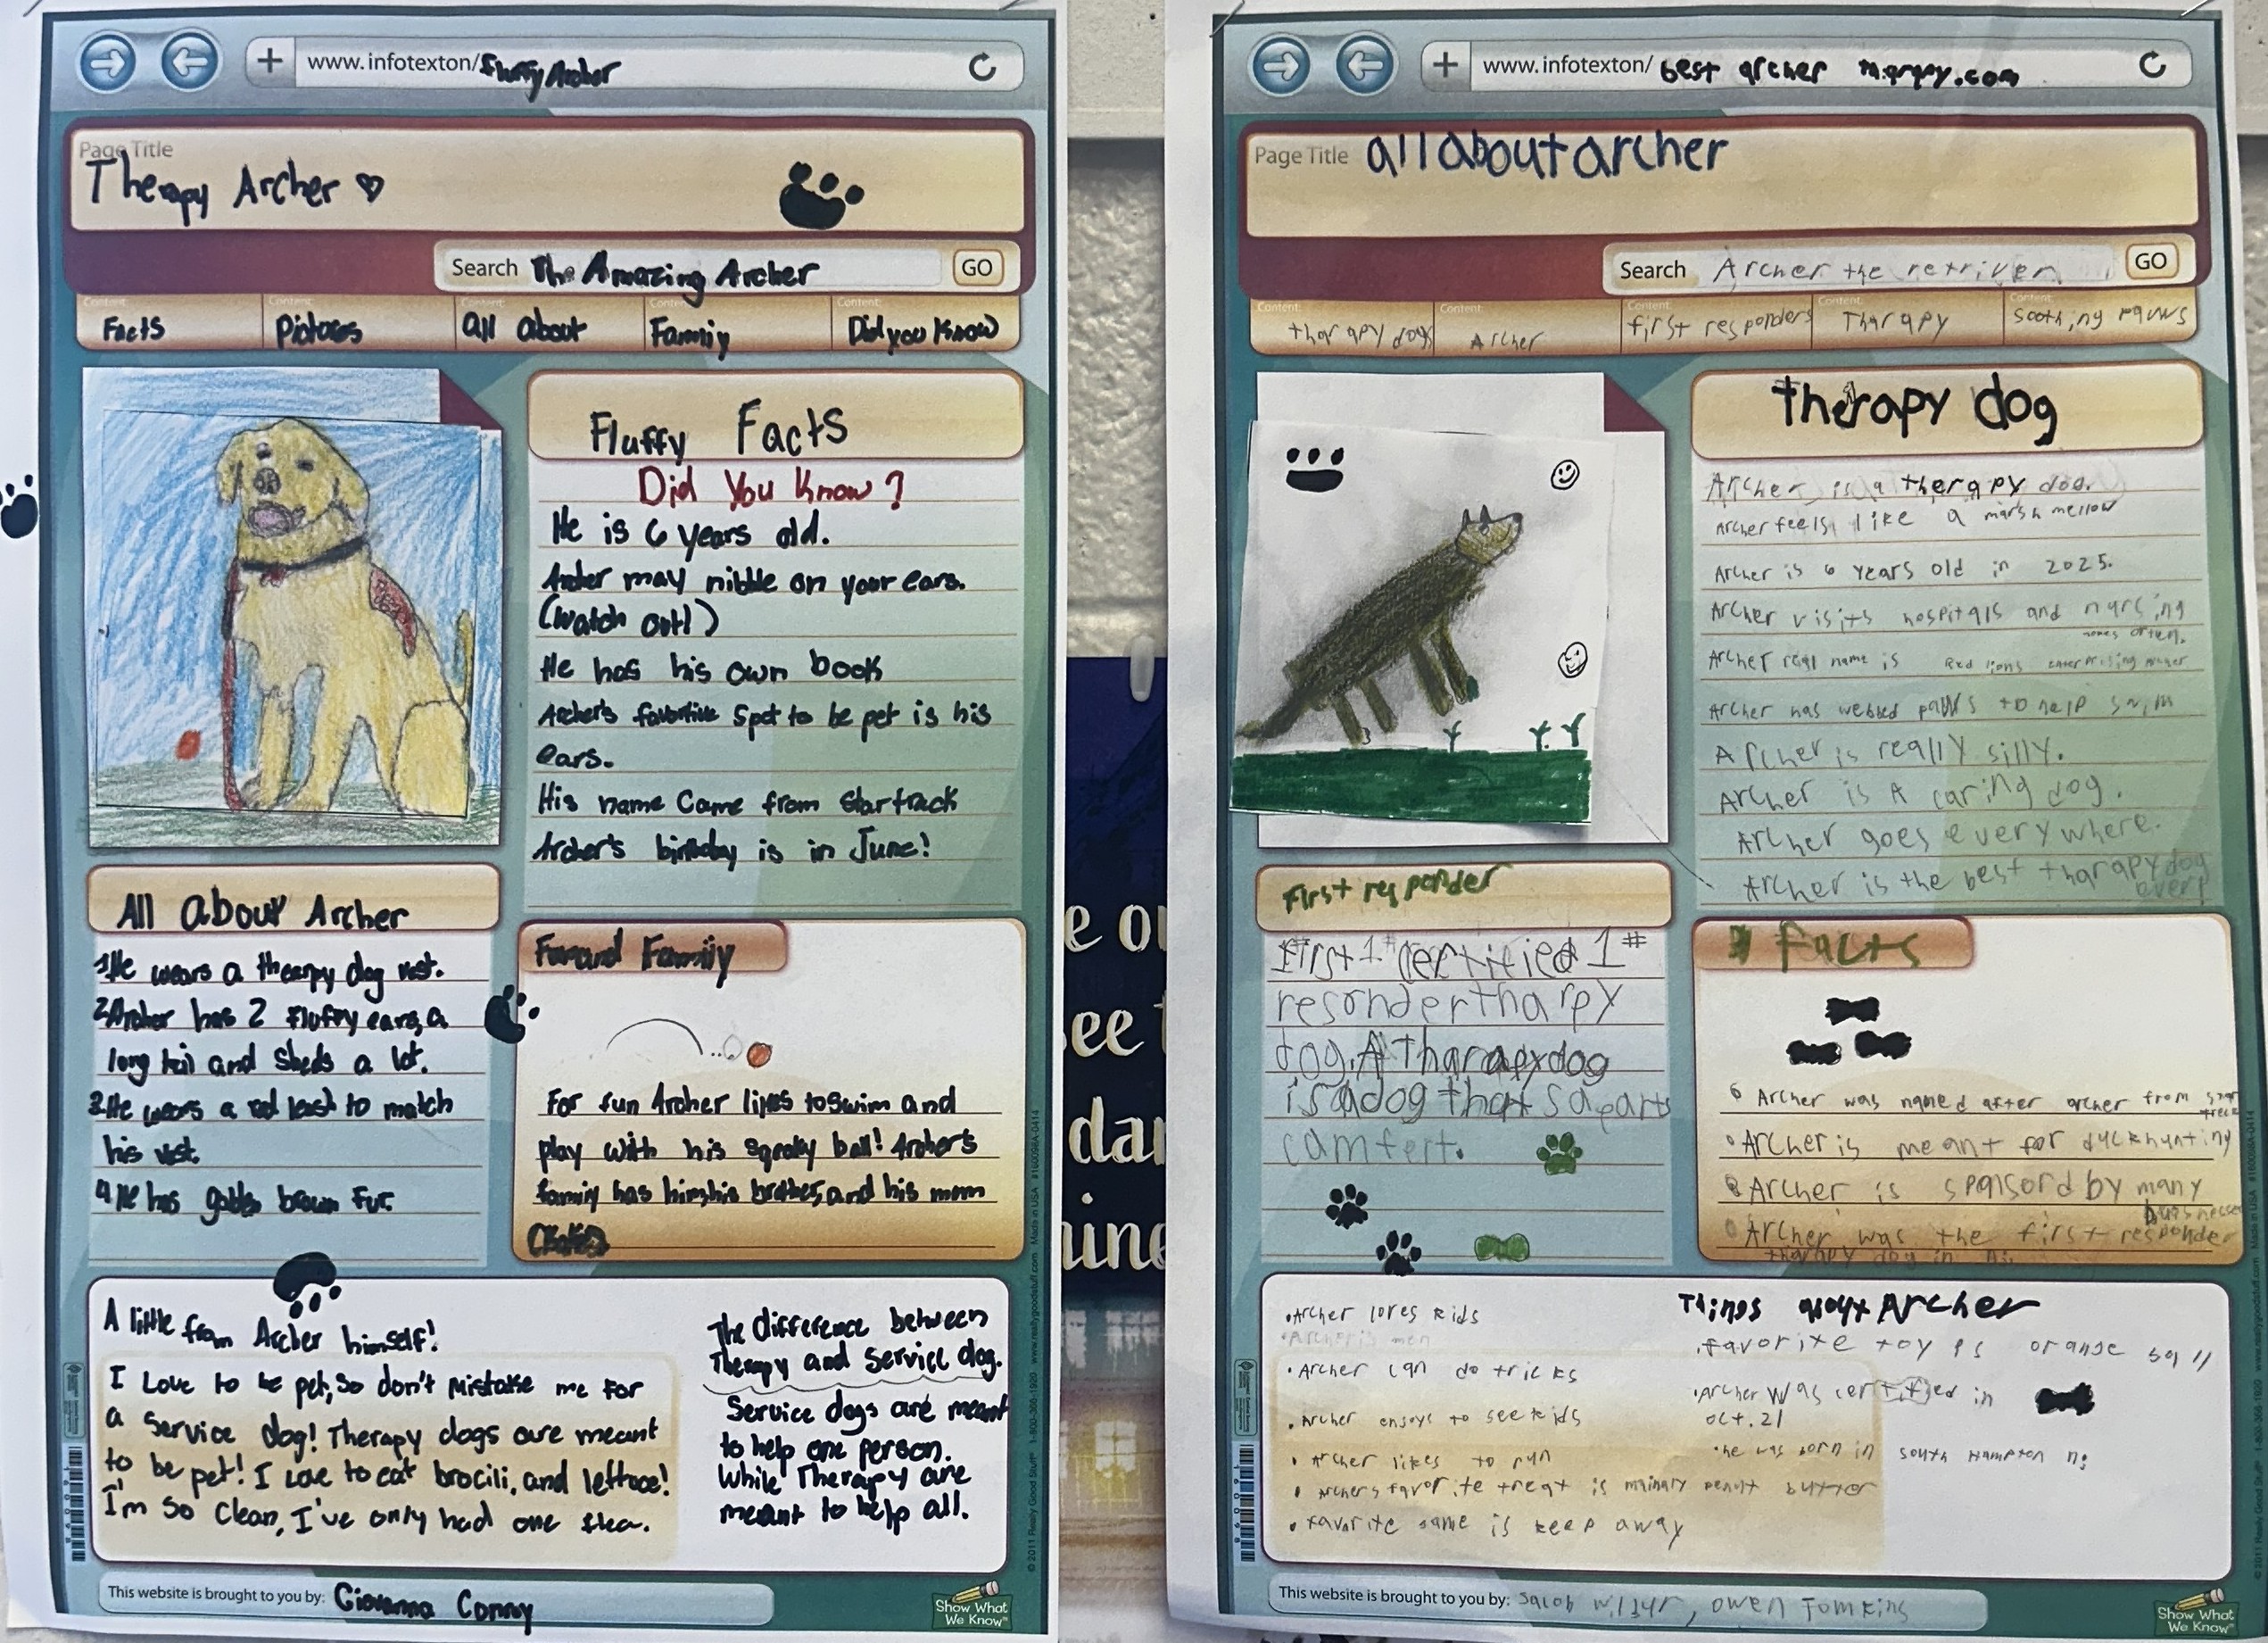 www.infotexton/fluffy Archer
Page Title
Therapy Archer
Search The Amazing Archer GO
Content: Content: Content: Content: Content:
Facts Pictures all about Family Did you know
Fluffy Facts
Did You Know?
He is 6 years old.
Archer may nibble on your ears.
(watch out!)
He has his own book
Archer's favoritive spot to be pet is his
ears.
His name Came from Startrack
Archer's birthday is in June!
All about Archer
1 He wears a therapy dog vest.
2 Archer has 2 fluffy ears, a
long tail and sheds a lot.
3 He wears a red leash to match
his vest.
4 He has golden brown fur.
Fun and Family
For fun Archer likes to swim and
play with his squeaky ball! Archer's
family has him, his brother, and his mom
A little from Archer himself!
I Love to be pet, so don't mistake me for
a service dog! Therapy dogs are meant
to be pet! I Love to eat brocili, and lettuce!
I'm so clean, I've only had one flea.
The difference between
Therapy and service dog.
Service dogs are meant
to help one person.
While Therapy are
meant to help all.
This website is brought to you by: Giovanna Conroy
Show What We Know
© 2011 Really Good Stuff® 1-800-366-1920 www.reallygoodstuff.com Made in USA #160098A-0414
www.infotexton/ best archer tharapy.com
Page Title all about archer
Search Archer the retriver GO
Content: Content: Content: Content: Content:
tharapy dogs Archer first responders Tharapy soothing pawws
therapy dog
Archer is a therapy dog.
Archer feels like a marshmellow
Archer is 6 years old in 2025.
Archer visits hospitals and nursing
homes often.
Archer real name is Red lions enterprising Archer
Archer has webbed pawws to help swim
Archer is really silly.
Archer is A caring dog.
Archer goes everywhere.
Archer is the best tharapy dog
ever!
First responder
First 1# certified 1#
resonder tharpy
dog. A Tharapy dog
is a dog that saparts
camfert.
Facts
Archer was named after archer from star
treck
Archer is meant for duckhunting
Archer is sponsord by many
Archer was the first responder
therapy dog in
Archer loves kids
Archer can do tricks
Archer enjoys to see kids
Archer likes to run
Archers favorite treat is penut butter
favorite game is keep away
Things about Archer
favorite toy is orange ball
Archer was certified in
oct. 21
he was born in south Hampton nj
This website is brought to you by: owen Tomkins
Show What We Know